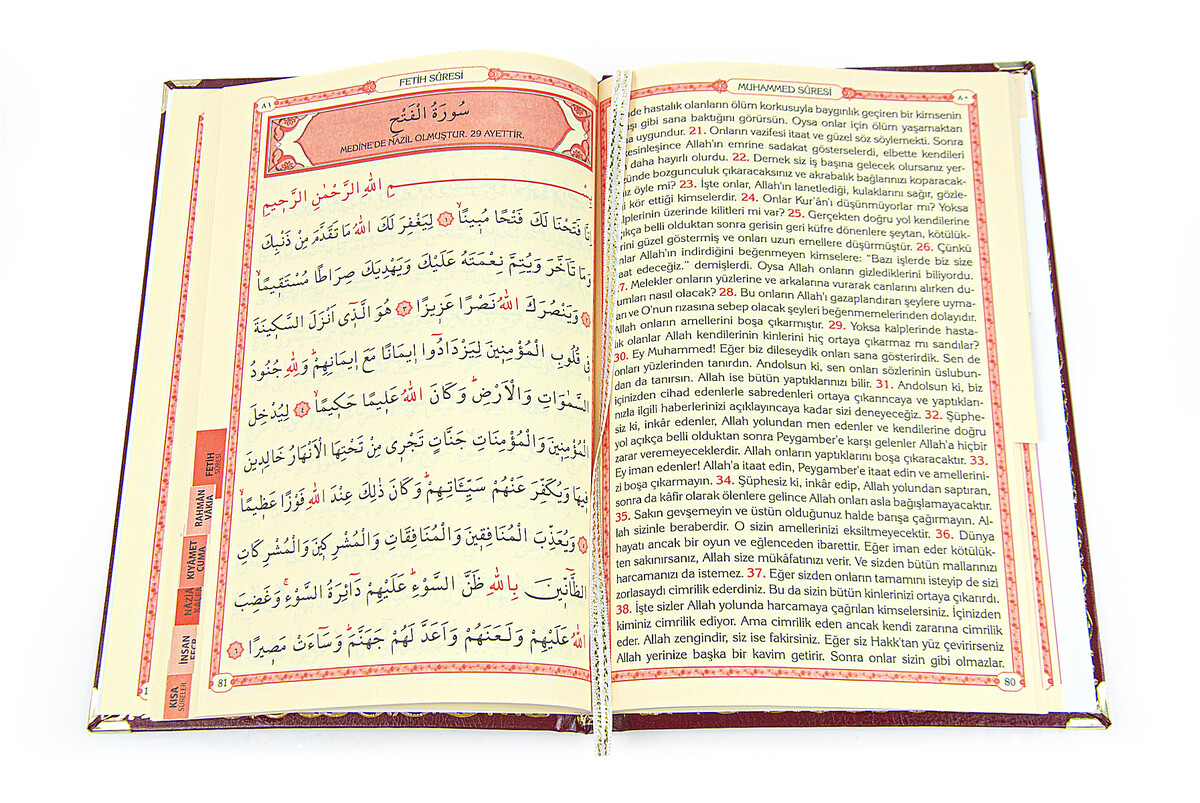 FETİH SÛRESİ
٨١
سُورَةُ الْفَتْحِ
MEDİNE'DE NAZİL OLMUŞTUR. 29 AYETTİR.
بِسْمِ اللهِ الرَّحْمٰنِ الرَّحِيمِ
اِنَّا فَتَحْنَا لَكَ فَتْحًا مُبِينًاۙ ﴿١﴾ لِيَغْفِرَ لَكَ اللهُ مَا تَقَدَّمَ مِنْ ذَنْبِكَ
وَمَا تَاَخَّرَ وَيُتِمَّ نِعْمَتَهُ عَلَيْكَ وَيَهْدِيَكَ صِرَاطًا مُسْتَقِيمًاۙ
﴿٢﴾ وَيَنْصُرَكَ اللهُ نَصْرًا عَزِيزًا ﴿٣﴾ هُوَ الَّذِٓي اَنْزَلَ السَّكِينَةَ
فِي قُلُوبِ الْمُؤْمِنِينَ لِيَزْدَادُٓوا اِيمَانًا مَعَ اِيمَانِهِمْۜ وَلِلّٰهِ جُنُودُ
السَّمٰوَاتِ وَالْاَرْضِۜ وَكَانَ اللهُ عَلِيمًا حَكِيمًاۙ ﴿٤﴾ لِيُدْخِلَ
الْمُؤْمِنِينَ وَالْمُؤْمِنَاتِ جَنَّاتٍ تَجْرِي مِنْ تَحْتِهَا الْاَنْهَارُ خَالِدِينَ
فِيهَا وَيُكَفِّرَ عَنْهُمْ سَيِّـَٔاتِهِمْۜ وَكَانَ ذٰلِكَ عِنْدَ اللهِ فَوْزًا عَظِيمًاۙ
﴿٥﴾ وَيُعَذِّبَ الْمُنَافِقِينَ وَالْمُنَافِقَاتِ وَالْمُشْرِكِينَ وَالْمُشْرِكَاتِ
الظَّٓانِّينَ بِاللهِ ظَنَّ السَّوْءِۜ عَلَيْهِمْ دَٓائِرَةُ السَّوْءِۚ وَغَضِبَ
اللهُ عَلَيْهِمْ وَلَعَنَهُمْ وَاَعَدَّ لَهُمْ جَهَنَّمَۜ وَسَٓاءَتْ مَصِيرًا ﴿٦﴾
81
FETİH
SÛRESİ
RAHMÂN
VÂKIA
KIYÂMET
CUMA
NÂZİÂ
İNSAN
KISA
SÛRELER
MUHAMMED SÛRESİ
٨٠
hastalık olanların ölüm korkusuyla baygınlık geçiren bir kimsenin
gibi sana baktığını görürsün. Oysa onlar için ölüm yaşamaktan
uygundur. 21. Onların vazifesi itaat ve güzel söz söylemekti. Sonra
kesinleşince Allah'ın emrine sadakat gösterselerdi, elbette kendileri
daha hayırlı olurdu. 22. Demek siz iş başına gelecek olursanız yer-
yüzünde bozgunculuk çıkaracaksınız ve akrabalık bağlarınızı koparacak-
öyle mi? 23. İşte onlar, Allah'ın lanetlediği, kulaklarını sağır, gözle-
kör ettiği kimselerdir. 24. Onlar Kur'ân'ı düşünmüyorlar mı? Yoksa
kalplerinin üzerinde kilitleri mi var? 25. Gerçekten doğru yol kendilerine
açıkça belli olduktan sonra gerisin geri küfre dönenlere şeytan, kötülük-
lerini güzel göstermiş ve onları uzun emellere düşürmüştür. 26. Çünkü
onlar Allah'ın indirdiğini beğenmeyen kimselere: "Bazı işlerde biz size
itaat edeceğiz." demişlerdi. Oysa Allah onların gizlediklerini biliyordu.
27. Melekler onların yüzlerine ve arkalarına vurarak canlarını alırken du-
rumları nasıl olacak? 28. Bu onların Allah'ı gazaplandıran şeylere uyma-
ları ve O'nun rızasına sebep olacak şeyleri beğenmemelerinden dolayıdır.
Allah onların amellerini boşa çıkarmıştır. 29. Yoksa kalplerinde hasta-
lık olanlar Allah kendilerinin kinlerini hiç ortaya çıkarmaz mı sandılar?
30. Ey Muhammed! Eğer biz dileseydik onları sana gösterirdik. Sen de
onları yüzlerinden tanırdın. Andolsun ki, sen onları sözlerinin üslubun-
dan da tanırsın. Allah ise bütün yaptıklarınızı bilir. 31. Andolsun ki, biz
içinizden cihad edenlerle sabredenleri ortaya çıkarıncaya ve yaptıkları-
nızla ilgili haberlerinizi açıklayıncaya kadar sizi deneyeceğiz. 32. Şüphe-
siz ki, inkâr edenler, Allah yolundan men edenler ve kendilerine doğru
yol açıkça belli olduktan sonra Peygamber'e karşı gelenler Allah'a hiçbir
zarar veremeyeceklerdir. Allah onların yaptıklarını boşa çıkaracaktır. 33.
Ey iman edenler! Allah'a itaat edin, Peygamber'e itaat edin ve amellerini-
zi boşa çıkarmayın. 34. Şüphesiz ki, inkâr edip, Allah yolundan saptıran,
sonra da kâfir olarak ölenlere gelince Allah onları asla bağışlamayacaktır.
35. Sakın gevşemeyin ve üstün olduğunuz halde barışa çağırmayın. Al-
lah sizinle beraberdir. O sizin amellerinizi eksiltmeyecektir. 36. Dünya
hayatı ancak bir oyun ve eğlenceden ibarettir. Eğer iman eder kötülük-
ten sakınırsanız, Allah size mükâfatınızı verir. Ve sizden bütün mallarınızı
harcamanızı da istemez. 37. Eğer sizden onların tamamını isteyip de sizi
zorlasaydı cimrilik ederdiniz. Bu da sizin bütün kinlerinizi ortaya çıkarırdı.
38. İşte sizler Allah yolunda harcamaya çağrılan kimselersiniz. İçinizden
kiminiz cimrilik ediyor. Ama cimrilik eden ancak kendi zararına cimrilik
eder. Allah zengindir, siz ise fakirsiniz. Eğer siz Hakk'tan yüz çevirirseniz
Allah yerinize başka bir kavim getirir. Sonra onlar sizin gibi olmazlar.
80